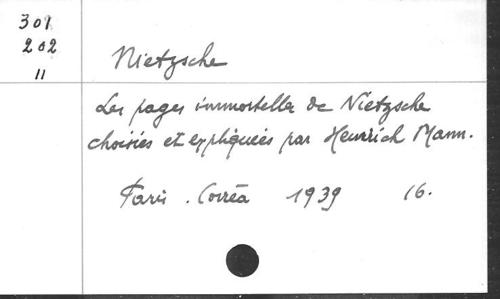 301
202
11
Nietzsche
Les pages immortelles de Nietzsche
choisies et expliquées par Heinrich Mann.
Paris. Corrêa 1939 16.